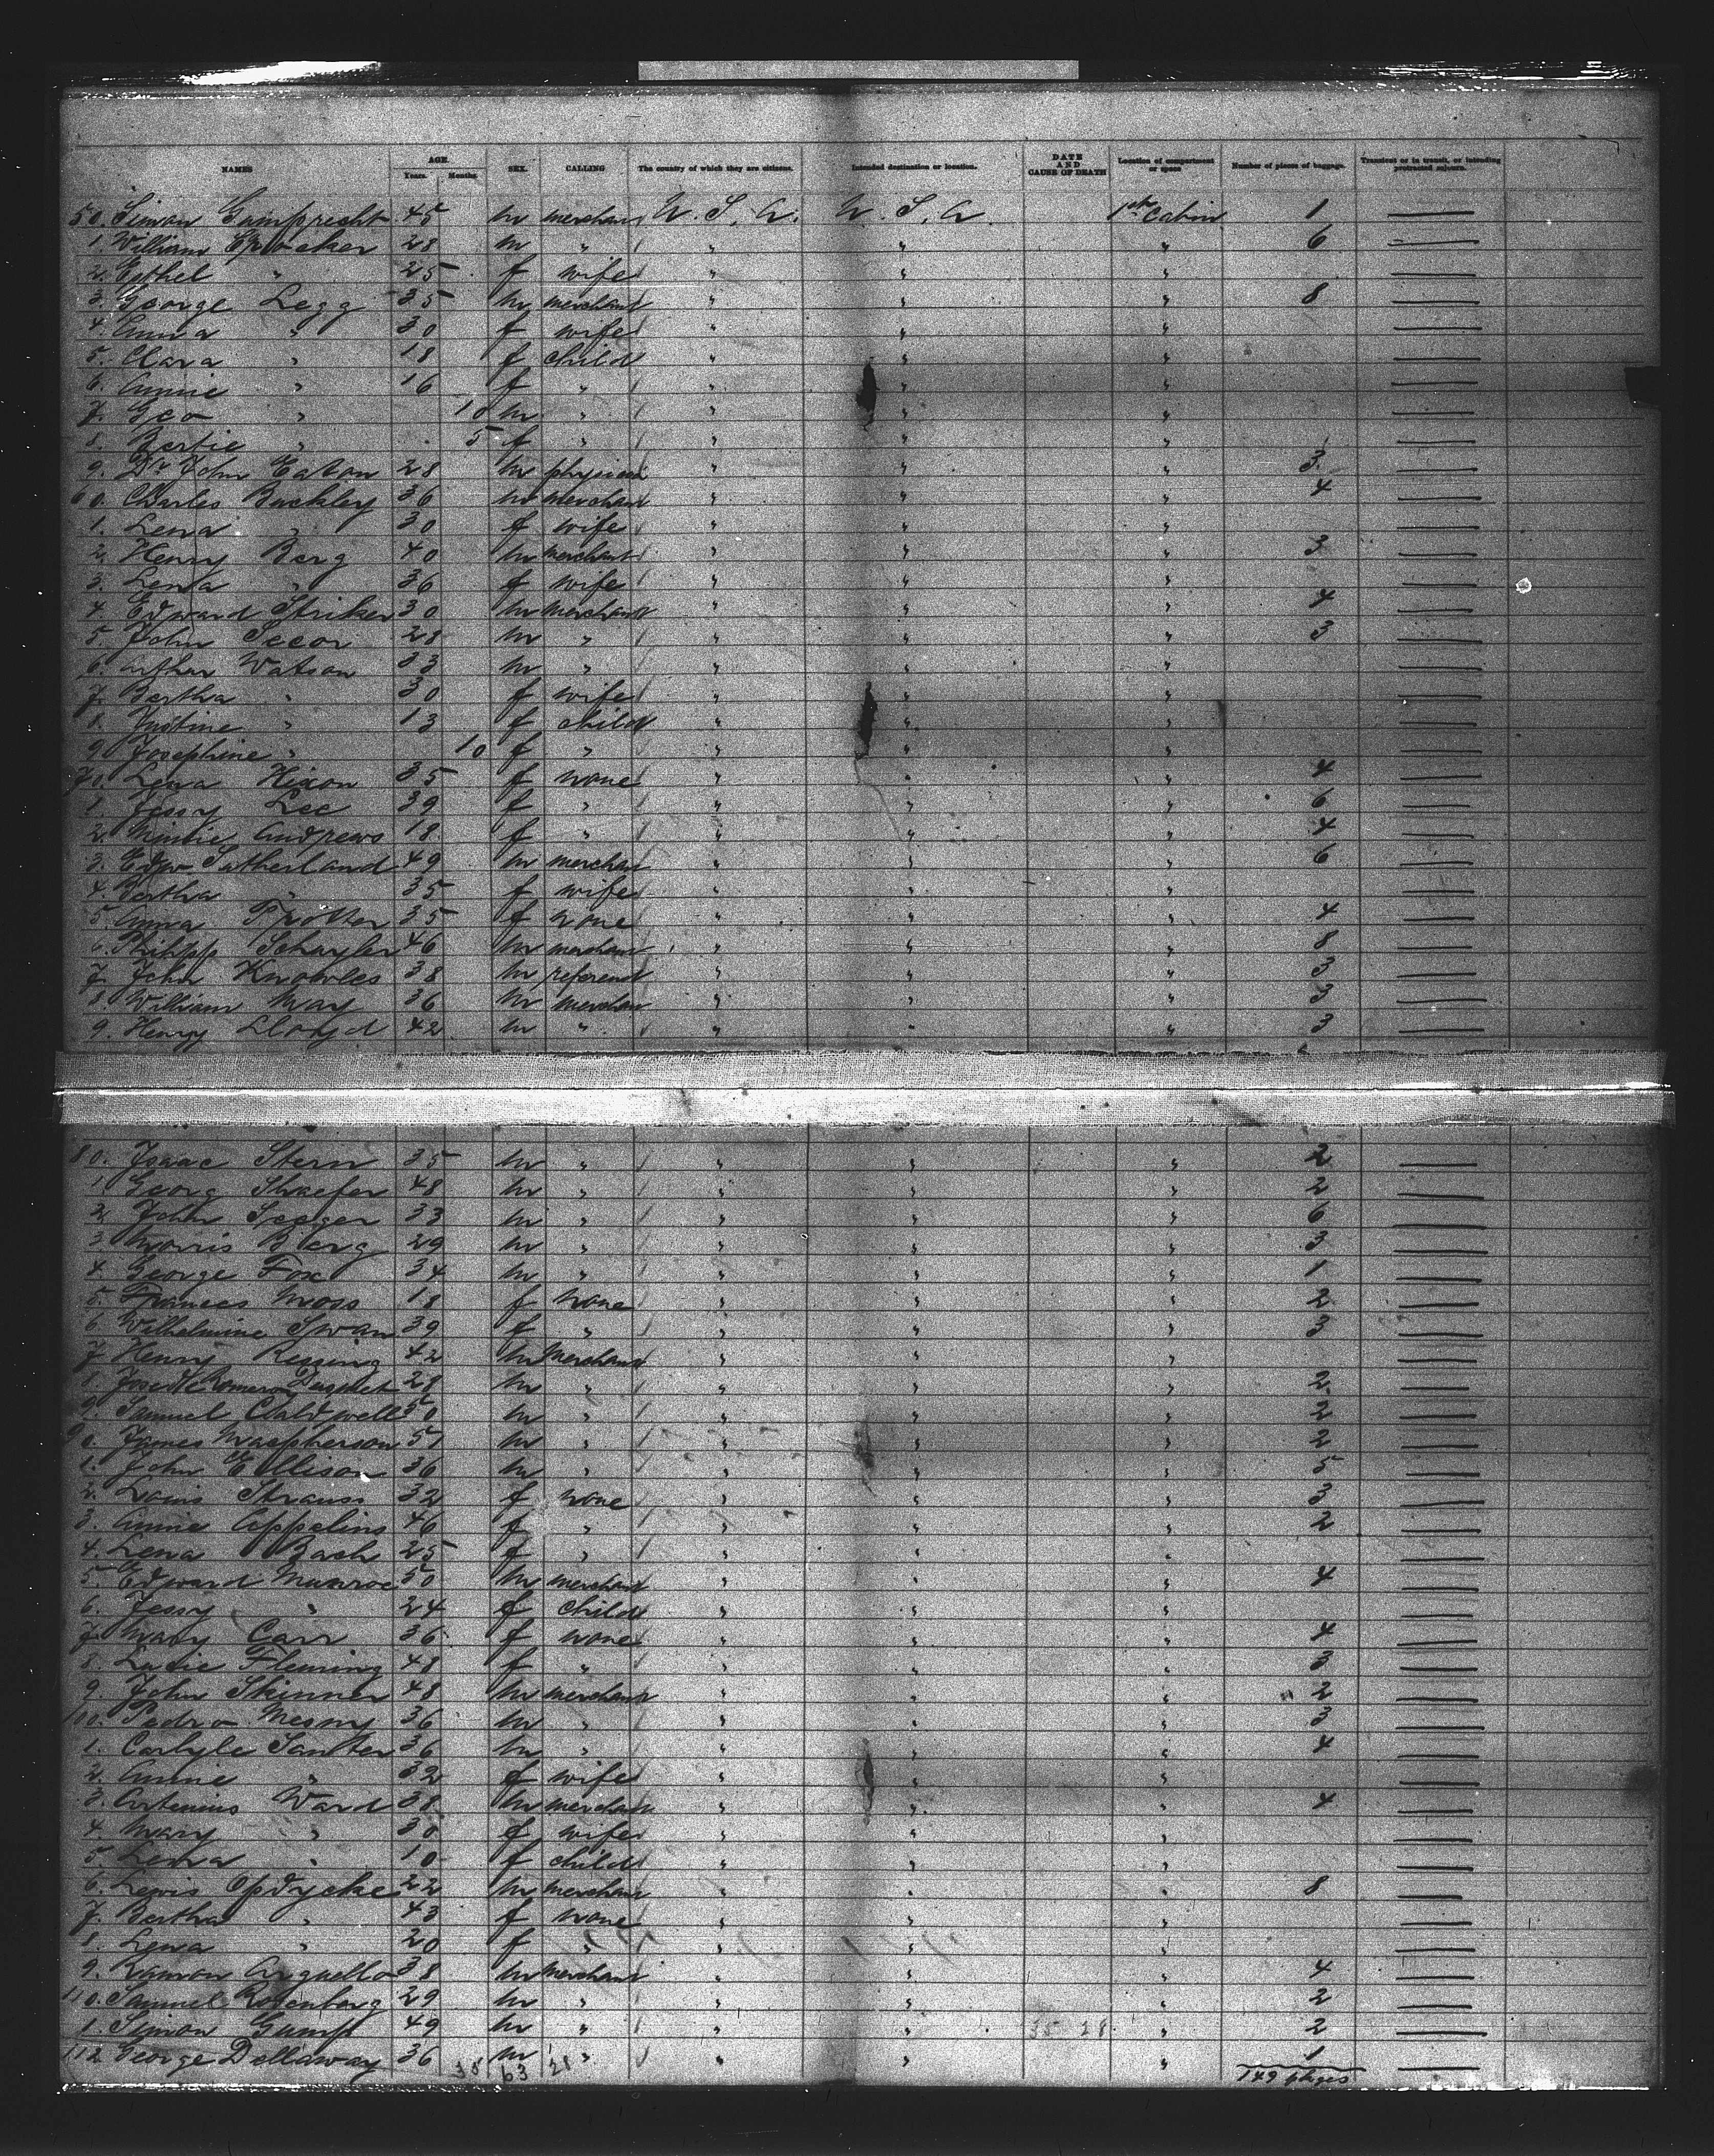 NAMES AGE. Years. Months SEX. CALLING The country of which they are citizens. Intended destination or location. DATE AND CAUSE OF DEATH Location of compartment or space Number of pieces of baggage. Transient or in transit, or intending protracted sojourn.
50. Simon Gumprecht 45 m merchant U. S. A. U. S. A. 1st Cabin 1 —
1. William 28 m " " " " 6 —
2. Ethel " 25 f wife " " " —
3. George Legg 35 m merchant " " " 8 —
4. Anna " 30 f wife " " " —
5. Clara " 18 f child " " " —
6. Annie " 16 f " " " " —
7. Geo " 10 m " " " " —
8. Bertie " 5 f " " " " —
9. Dr John Eaton 28 m physician " " " 3 —
60. Charles Buckley 36 m merchant " " " 4 —
1. Lena " 30 f wife " " " —
2. Henry Berg 40 m merchant " " " 3 —
3. Lena " 36 f wife " " " —
4. Edward Striker 30 m merchant " " " 4 —
5. John Secor 28 m " " " " 3 —
6. Arthur Watson 33 m " " " " —
7. Bertha " 30 f wife " " " —
8. Justine " 13 f child " " " —
9. Josephine " 10 f " " " " —
70. Lena Hixon 35 f none " " " 4 —
1. Jessy Lee 39 f " " " " 6 —
2. Minnie Andrews 18 f " " " " 4 —
3. Edw Sutherland 49 m merchan " " " 6 —
4. Bertha " 35 f wife " " " —
5. Anna Trotter 35 f none " " " 4 —
6. Philipp Schuyler 46 m merchant " " " 8 —
7. John Knowles 38 m referend " " " 3 —
8. William May 36 m merchan " " " 3 —
9. Henry Lloyd 42 m " " " " 3 —
80. Isaac Stern 35 m " " " " 2 —
1. Georg Shaefer 48 m " " " " 2 —
2. John Seeger 33 m " " " " 6 —
3. Morris Berg 29 m " " " " 3 —
4. George Fox 34 m " " " " 1 —
5. Frances Moss 18 f none " " " 2 —
6. Wilhelmine Swan 39 f " " " " 3 —
7. Henry Ressing 42 m Merchant " " " —
8. 28 m " " " " 2 —
9. Samuel Chaldwell 50 m " " " " 2 —
90. James Macpherson 57 m " " " " 2 —
1. John Ellison 36 m " " " " 5 —
2. Louis Strauss 32 f none " " " 3 —
3. Anna Appelius 46 f " " " " 2 —
4. Lena Bach 25 f " " " " —
5. Edward Munroe 50 m merchant " " " 4 —
6. Jessy " 24 f child " " " —
7. Mary Carr 36 f none " " " 4 —
8. Lydie Fleming 48 f " " " " 3 —
9. John Skinner 48 m merchant " " " 2 —
100. Pedro 36 m " " " " 3 —
1. Carlyle Santer 36 m " " " " 4 —
2. Annie " 32 f wife " " " —
3. Artemus Ward 38 m merchan " " " 4 —
4. Mary " 30 f wife " " " —
5. Lena " 10 f child " " " —
6. Lewis Opdycke 22 m merchant " " " 8 —
7. Bertha " 43 f none " " " —
8. Lena " 20 f " " " " —
9. Ramon Arguello 38 m merchant " " " 4 —
110. Samuel Rosenberg 29 m " " " " 2 —
1. Simon Gump 49 m " " " " 2 —
112 George Dellaway 36 m " " " " 1 —
38 63 21 149 pkges